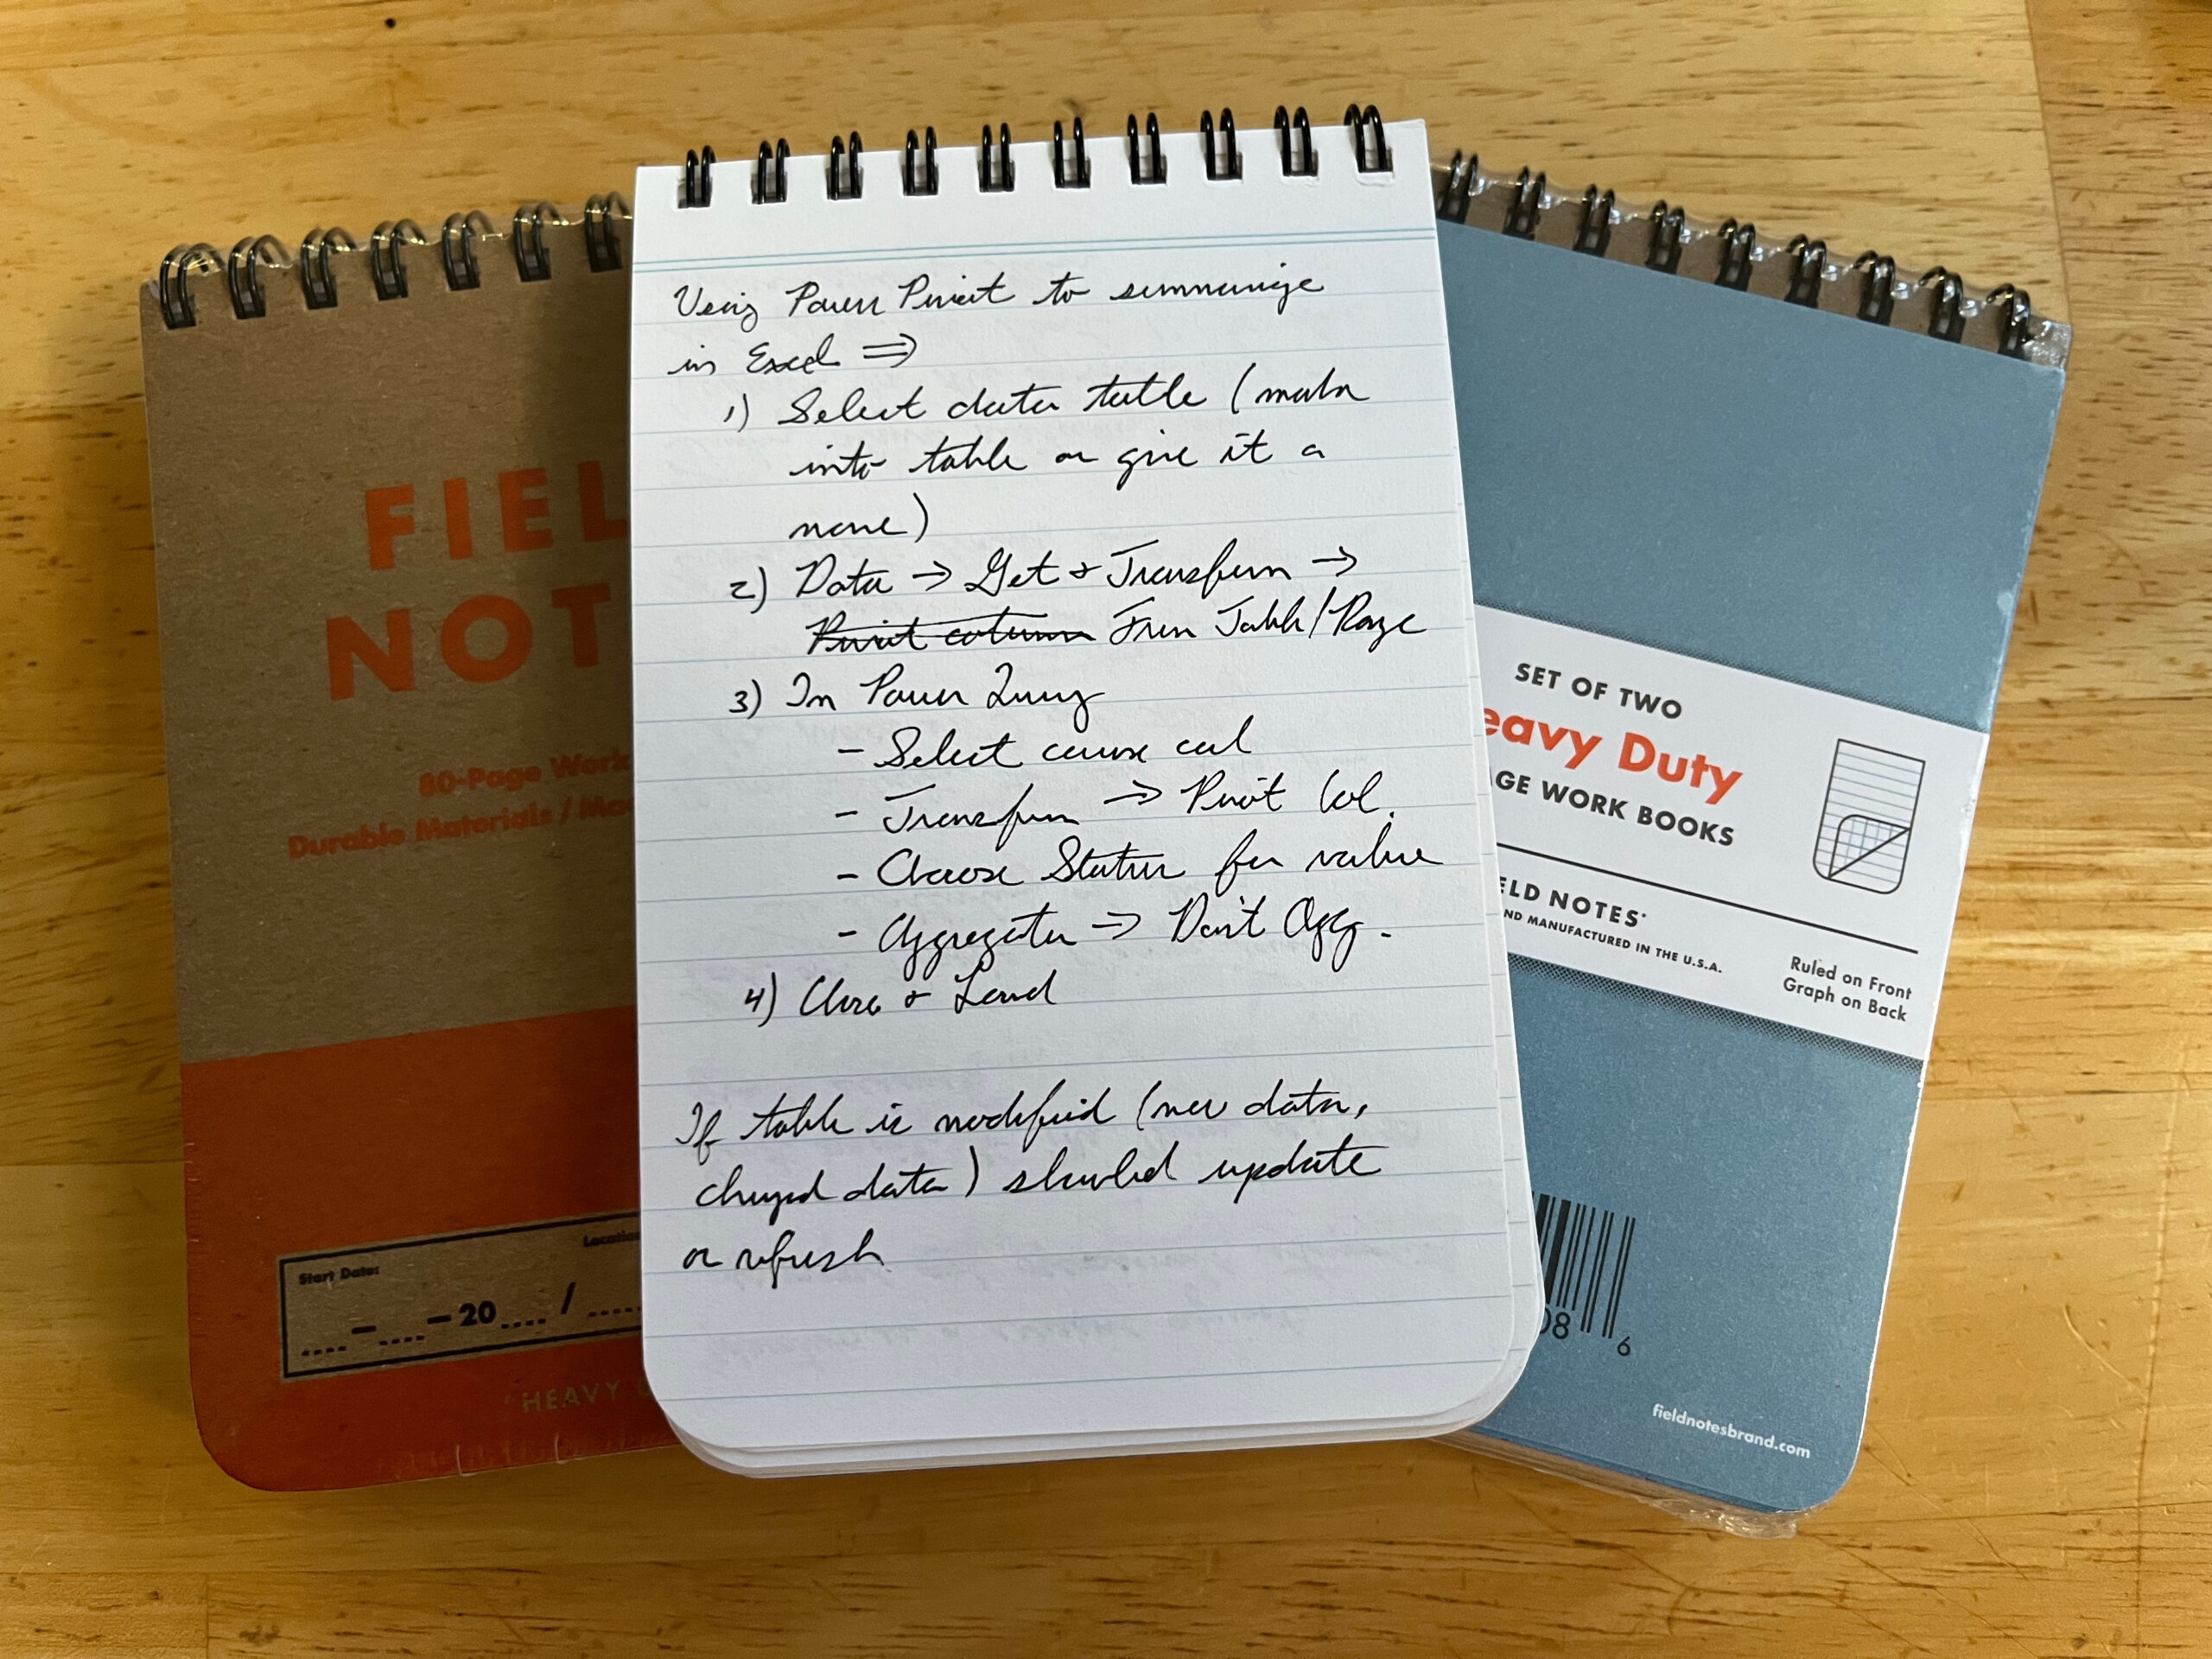 FIEL
NOT
80-Page Work
Durable Materials / Ma
Start Date:
Locatio
– – 20 /
HEAVY
Using Power Pivot to summarize
in Excel ⇒
1) Select data table (make
into table or give it a
name)
2) Data → Get & Transform →
Pivot column From Table/Range
3) In Power Query
- Select course col
- Transform → Pivot Col.
- Choose Status for value
- Aggregate → Don't Agg.
4) Close & Load
If table is modified (new data,
changed data) should update
or refresh
SET OF TWO
eavy Duty
GE WORK BOOKS
ELD NOTES
ND MANUFACTURED IN THE U.S.A.
Ruled on Front
Graph on Back
08 6
fieldnotesbrand.com